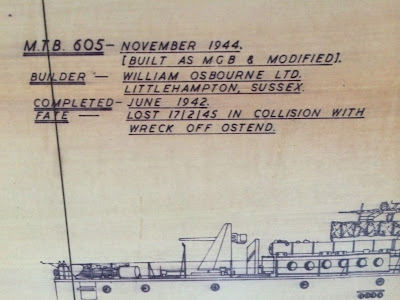 M.T.B. 605 - NOVEMBER 1944.
[BUILT AS MGB & MODIFIED].
BUILDER - WILLIAM OSBOURNE LTD.
LITTLEHAMPTON, SUSSEX.
COMPLETED - JUNE 1942.
FATE - LOST 17/2/45 IN COLLISION WITH
WRECK OFF OSTEND.